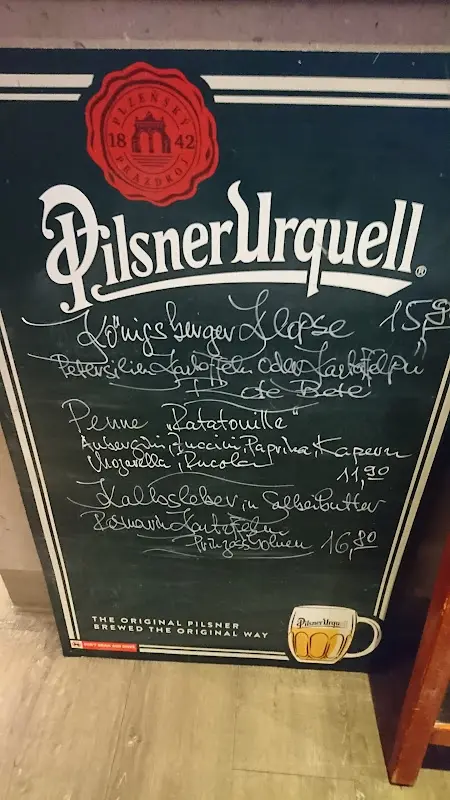 PLZEŇSKÝ
18 42
PRAZDROJ
Pilsner Urquell®
Königsberger Klopse 15,90
Petersilien Kartoffeln oder Kartoffelpü
Rote Bete
Penne „Ratatouille"
Auberginen, Zuccini, Paprika, Kapern
Mozarella, Rucola
11,90
Kalbsleber in Salbeibutter
Rosmarin Kartoffeln
Prinzessbohnen 16,80
THE ORIGINAL PILSNER
BREWED THE ORIGINAL WAY
Pilsner Urquell
DON'T DRINK AND DRIVE